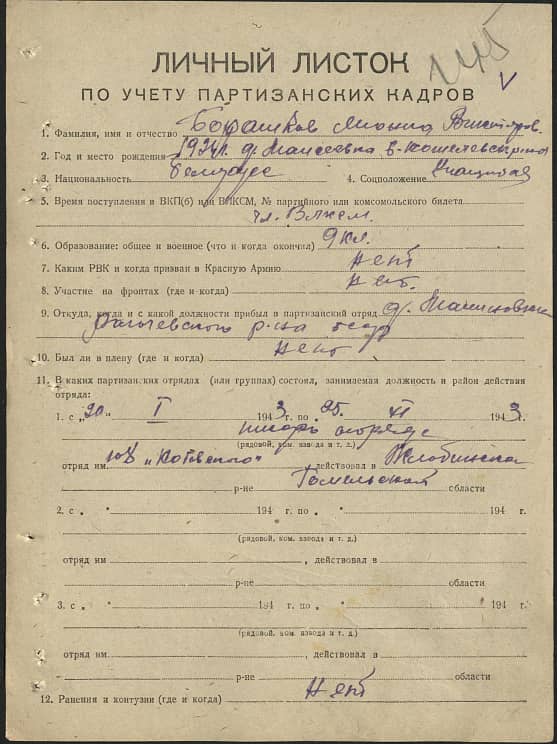 ЛИЧНЫЙ ЛИСТОК
ПО УЧЕТУ ПАРТИЗАНСКИХ КАДРОВ
1. Фамилия, имя и отчество
2. Год и место рождения 1924 г. д.
3. Национальность белорус 4. Соцположение учащийся
5. Время поступления в ВКП(б) или ВЛКСМ, № партийного или комсомольского билета
чл. ВЛКСМ
6. Образование: общее и военное (что и когда окончил) 9 кл.
7. Каким РВК и когда призван в Красную Армию нет
8. Участие на фронтах (где и когда) нет.
9. Откуда, когда и с какой должности прибыл в партизанский отряд д.
р-на
10. Был ли в плену (где и когда) нет
11. В каких партизанских отрядах (или группах) состоял, занимаемая должность и район действия
отряда:
1. с „20" I 1943 г. по „25 XI 1943 г.
писарь отряда
(рядовой, ком. взвода и т. д.)
отряд им. „Котовского" действовал в
р-не Гомельской области
2. с „ " 194 г. по „ " 194 г.
(рядовой, ком. взвода и т. д.)
отряд им , действовал в
р-не области
3. с „ " 194 г. по „ " 194 г.
(рядовой, ком. взвода и т. д.)
отряд им , действовал в
р-не области
12. Ранения и контузии (где и когда) нет